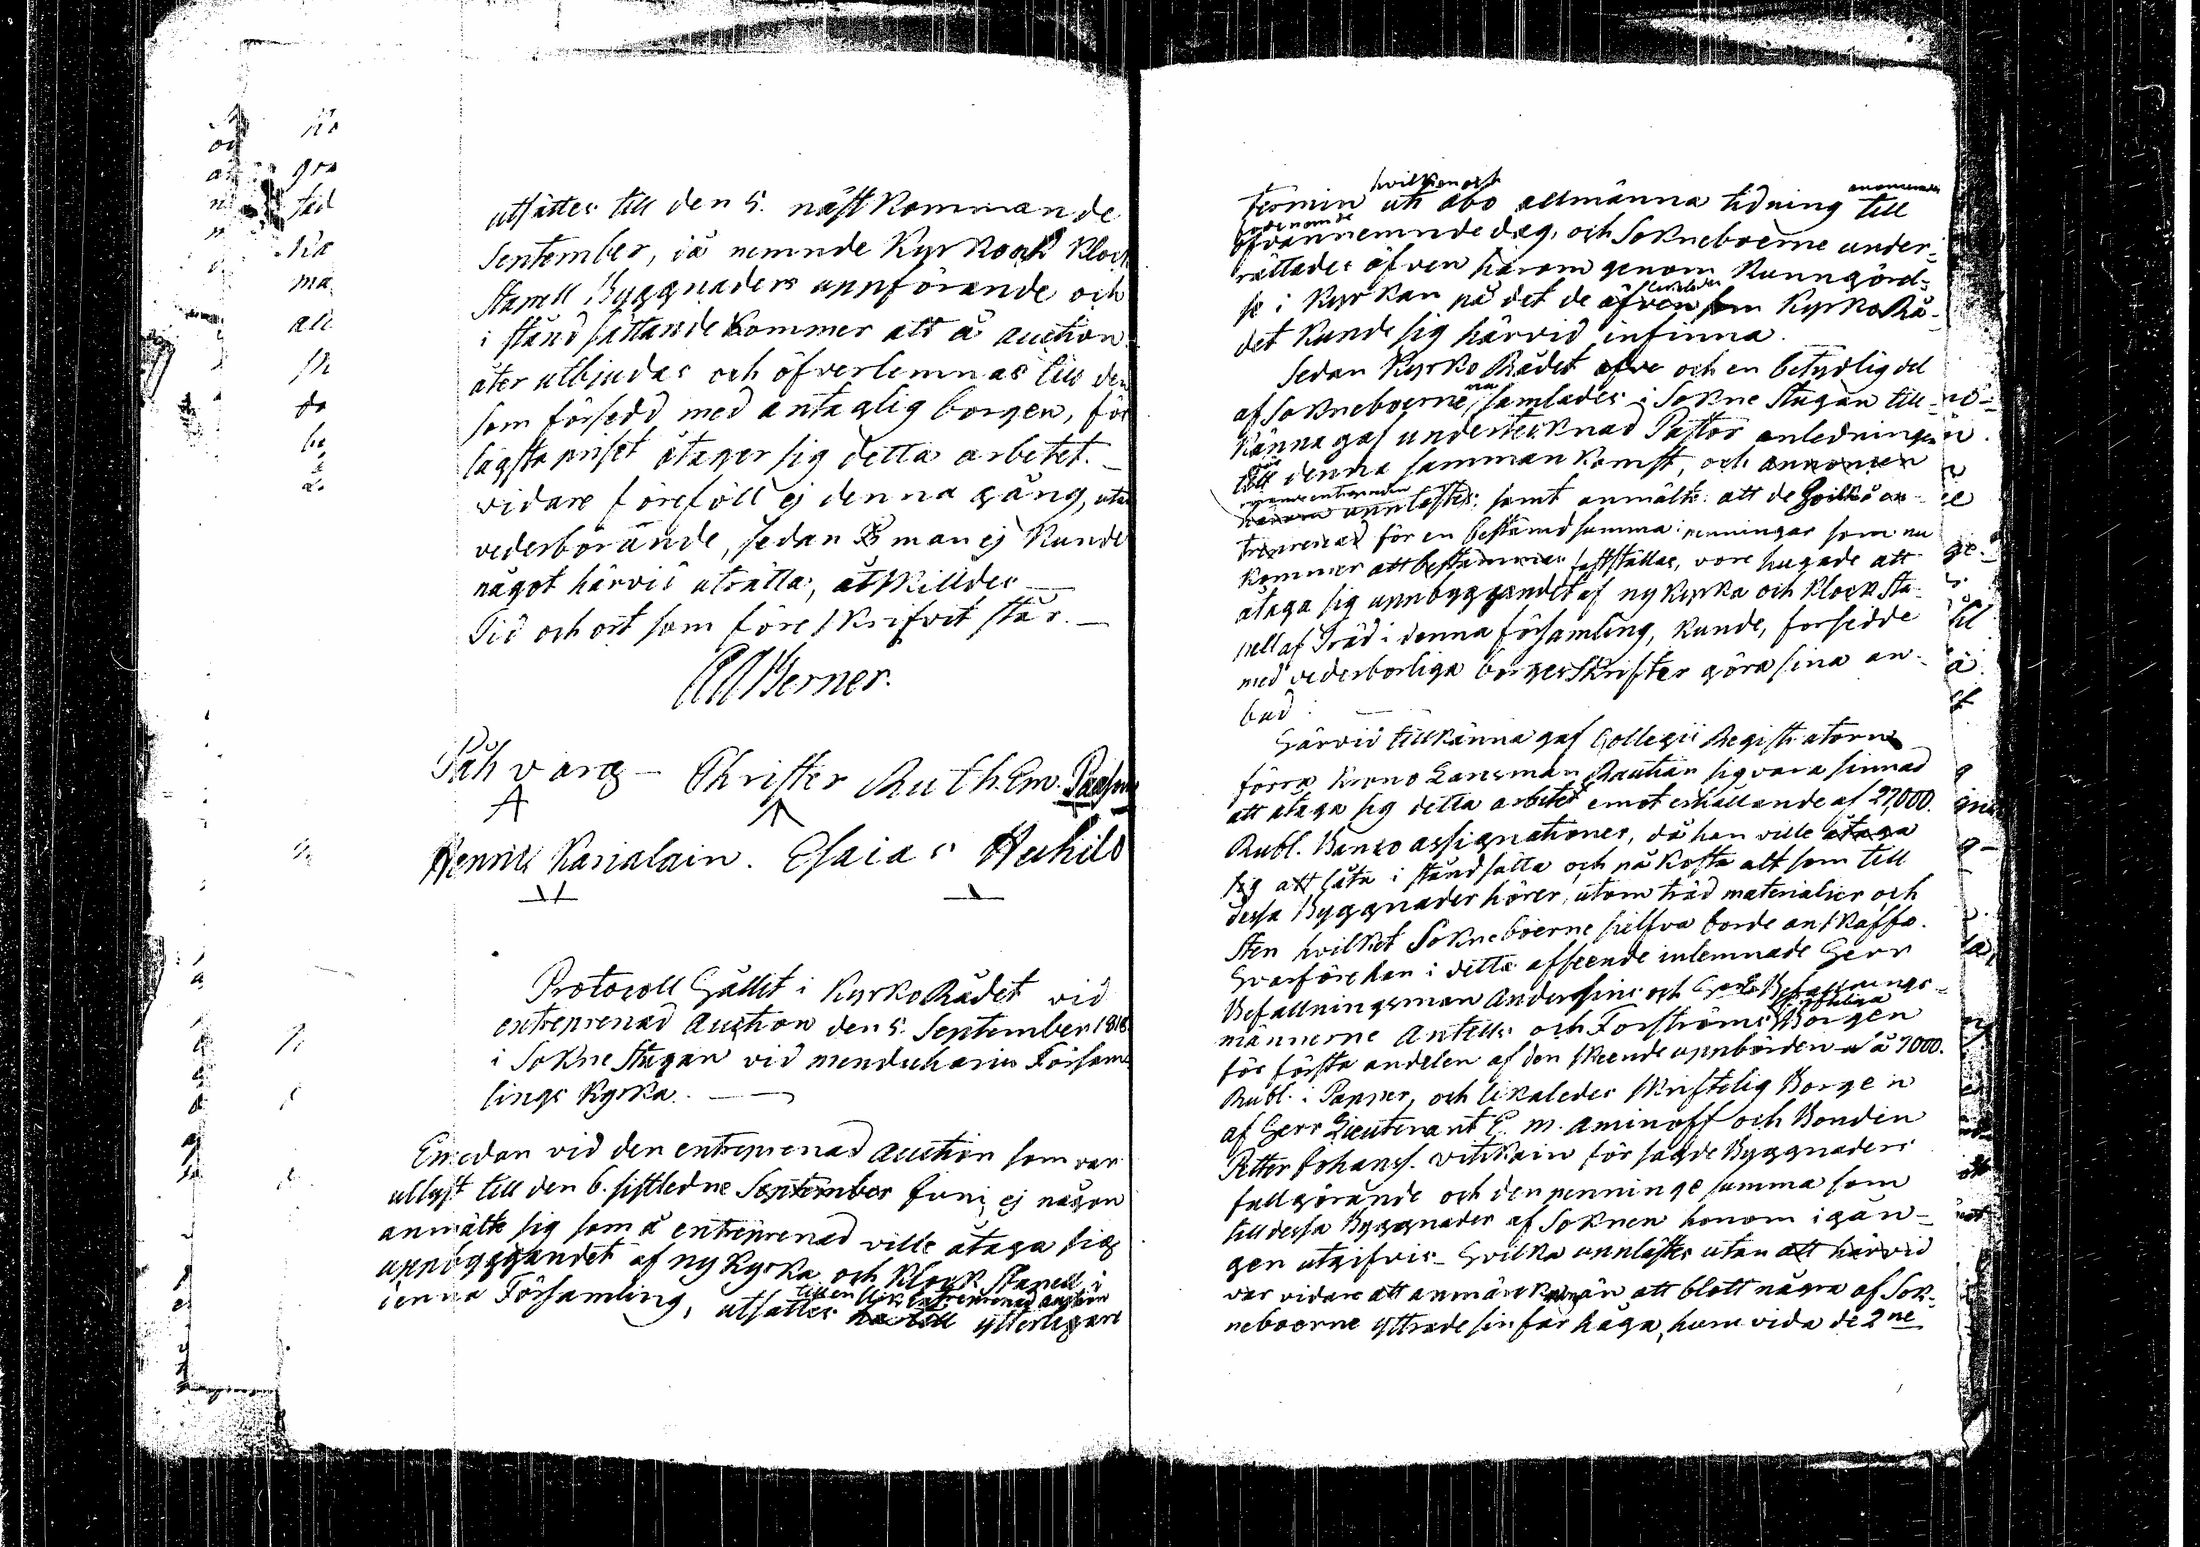 utsättes till den 5. nästkommande
September, då nemnde Kyrko och Klock
stapell Byggnaders uppförande och
i stånd sättande kommer att å auction
åter utbjudas och öfverlemnas till den
som försedd med antaglig borgen, för
lägsta priset åtager sig detta arbetet. _
vidare föreföll ej denna gång, utan
vederbörande, sedan man ej kunde
något härvid uträtta, åtskilldes _
Tid och ort som föreskrifvit står. _
Berner.
Påhl varg - Christer Auth. Em. Paason
Karialain. Esaias Huhild
Protocoll Hållit i KyrkoRådet vid
entreprenad Auction den 5. September 1818
i Sokne Stugan vid menduharju Försam
lings Kyrka. _
Emedan vid den entreprenad auction som var
utlyst till den 6. sistledne September Juni ej någon
anmälte sig som å entreprenad ville åtaga sig
uppbyggandet af ny Kyrka och Klock stapell i
denna Församling, utsattes till en entreprenad auction ytterligare
termin hvilken och uti Åbo allmänna tidning till
ofvannemnde dag, och Sokneboerne under-
rättades äfven härom genom Kunngörel-
se i Kyrkan på det de äfven som KyrkoRå-
det kunde sig härvid infinna.
Sedan KyrkoRådet och en betydlig del
af Sokneboerne samlades i Sokne Stugan till-
känna gaf undertecknad Pastor anledningen
till denna sammankomst, och annoncen
härom upplästes; samt anmälte att de hvilka en-
treprenad för en bestämd summa penningar som nu
kommer att bestämmas fastställas, vore hugade att
åtaga sig uppbyggandet af ny kyrka och Klock sta-
pell af Träd i denna församling, kunde, försedde
med vederborliga borgesskrifter göra sina an-
bud. _
Härvid tillkänna gaf Collegii Registratorn
förra Krono Länsman Rautian sig vara sinnad
att åtaga sig detta arbetet emot erhållande af 27,000.
Rubl. Banco assignationer, då han ville åtaga
sig att låta i stånd sätta och på kosta alt som till
dessa Byggnader hörer, utom träd materialier och
Sten hvilket Sokneboerne sielfva borde anskaffa.
Hvarföre han i detta afseende inlemnade Herr
Befallningsman Andersins och Befallnings-
männerne Antells och Forströms skriftliga Borgen
för första andelen af den skeende uppbörden a å 7000.
Rubl. i Papper, och likaledes skriftelig Borgen
af Herr Lieutenant E. M. Aminoff och Bonden
Petter Johanss. vitikain för sagde Byggnaders
fullgörande och den penninge summa som
till dessa Byggnader af Soknen honom i gån-
gen utgifvis _ Hvilka upplästes utan att härvid
var vidare att anmärka än att blott några af Sok-
neboerne yttrade sin farhåga, huru vida de 2ne